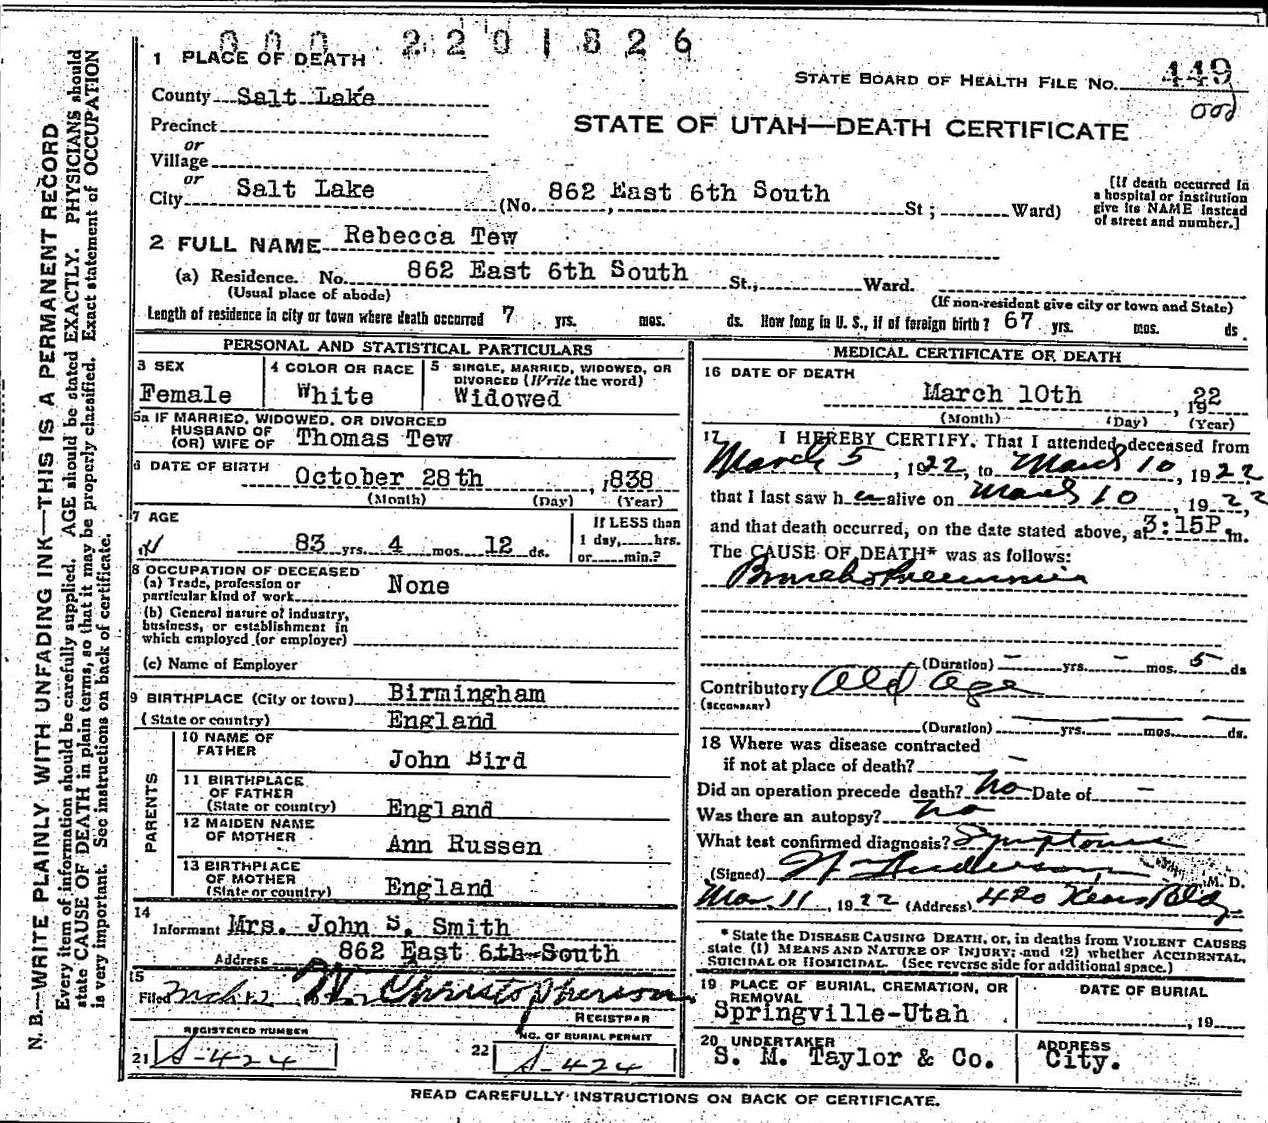 300 2201826
1 PLACE OF DEATH
STATE BOARD OF HEALTH FILE NO. 449
County Salt Lake
Precinct
or
Village
or
City Salt Lake (No. 862 East 6th South St; Ward)
STATE OF UTAH—DEATH CERTIFICATE
[If death occurred in
a hospital or institution
give its NAME instead
of street and number.]
2 FULL NAME Rebecca Tew
(a) Residence. No. 862 East 6th South St., Ward.
(Usual place of abode)
(If non-resident give city or town and State)
Length of residence in city or town where death occurred 7 yrs. mos. ds. How long in U. S., if of foreign birth? 67 yrs. mos. ds.
PERSONAL AND STATISTICAL PARTICULARS
3 SEX
Female
4 COLOR OR RACE
White
5 SINGLE, MARRIED, WIDOWED, OR
DIVORCED (Write the word)
Widowed
5a IF MARRIED, WIDOWED, OR DIVORCED
HUSBAND OF
(OR) WIFE OF Thomas Tew
6 DATE OF BIRTH October 28th, 1838
(Month) (Day) (Year)
7 AGE
83 yrs. 4 mos. 12 ds.
If LESS than
1 day, hrs.
or min.?
8 OCCUPATION OF DECEASED
(a) Trade, profession or
particular kind of work None
(b) General nature of industry,
business, or establishment in
which employed (or employer)
(c) Name of Employer
9 BIRTHPLACE (City or town) Birmingham
(State or country) England
PARENTS
10 NAME OF
FATHER John Bird
11 BIRTHPLACE
OF FATHER
(State or country) England
12 MAIDEN NAME
OF MOTHER Ann Russen
13 BIRTHPLACE
OF MOTHER
(State or country) England
14
Informant Mrs. John S. Smith
Address 862 East 6th South
15
Filed Mch 12 Christopherson
REGISTRAR
REGISTERED NUMBER
21 S-424
NO. OF BURIAL PERMIT
22 S-424
MEDICAL CERTIFICATE OR DEATH
16 DATE OF DEATH
March 10th, 1922
(Month) (Day) (Year)
17 I HEREBY CERTIFY, That I attended deceased from
March 5, 1922, to March 10, 1922
that I last saw her alive on March 10, 1922,
and that death occurred, on the date stated above, at 3:15P.m.
The CAUSE OF DEATH* was as follows:
Broncho Pneumonia
(Duration) – yrs. – mos. 5 ds
Contributory Old Age
(SECONDARY)
(Duration) yrs. mos. ds.
18 Where was disease contracted
if not at place of death? –
Did an operation precede death? No Date of –
Was there an autopsy? No
What test confirmed diagnosis? Symptoms
(Signed) Anderson, M. D.
Mar 11, 1922 (Address) 420 Kearns Bldg
* State the DISEASE CAUSING DEATH, or, in deaths from VIOLENT CAUSES
state (1) MEANS AND NATURE OF INJURY; and (2) whether ACCIDENTAL,
SUICIDAL OR HOMICIDAL. (See reverse side for additional space.)
19 PLACE OF BURIAL, CREMATION, OR
REMOVAL
Springville-Utah
DATE OF BURIAL
, 19
20 UNDERTAKER
S. M. Taylor & Co.
ADDRESS
City.
READ CAREFULLY INSTRUCTIONS ON BACK OF CERTIFICATE.
N. B.—WRITE PLAINLY WITH UNFADING INK—THIS IS A PERMANENT RECORD
Every item of information should be carefully supplied. AGE should be stated EXACTLY. PHYSICIANS should
state CAUSE OF DEATH in plain terms, so that it may be properly classified. Exact statement of OCCUPATION
is very important. See instructions on back of certificate.